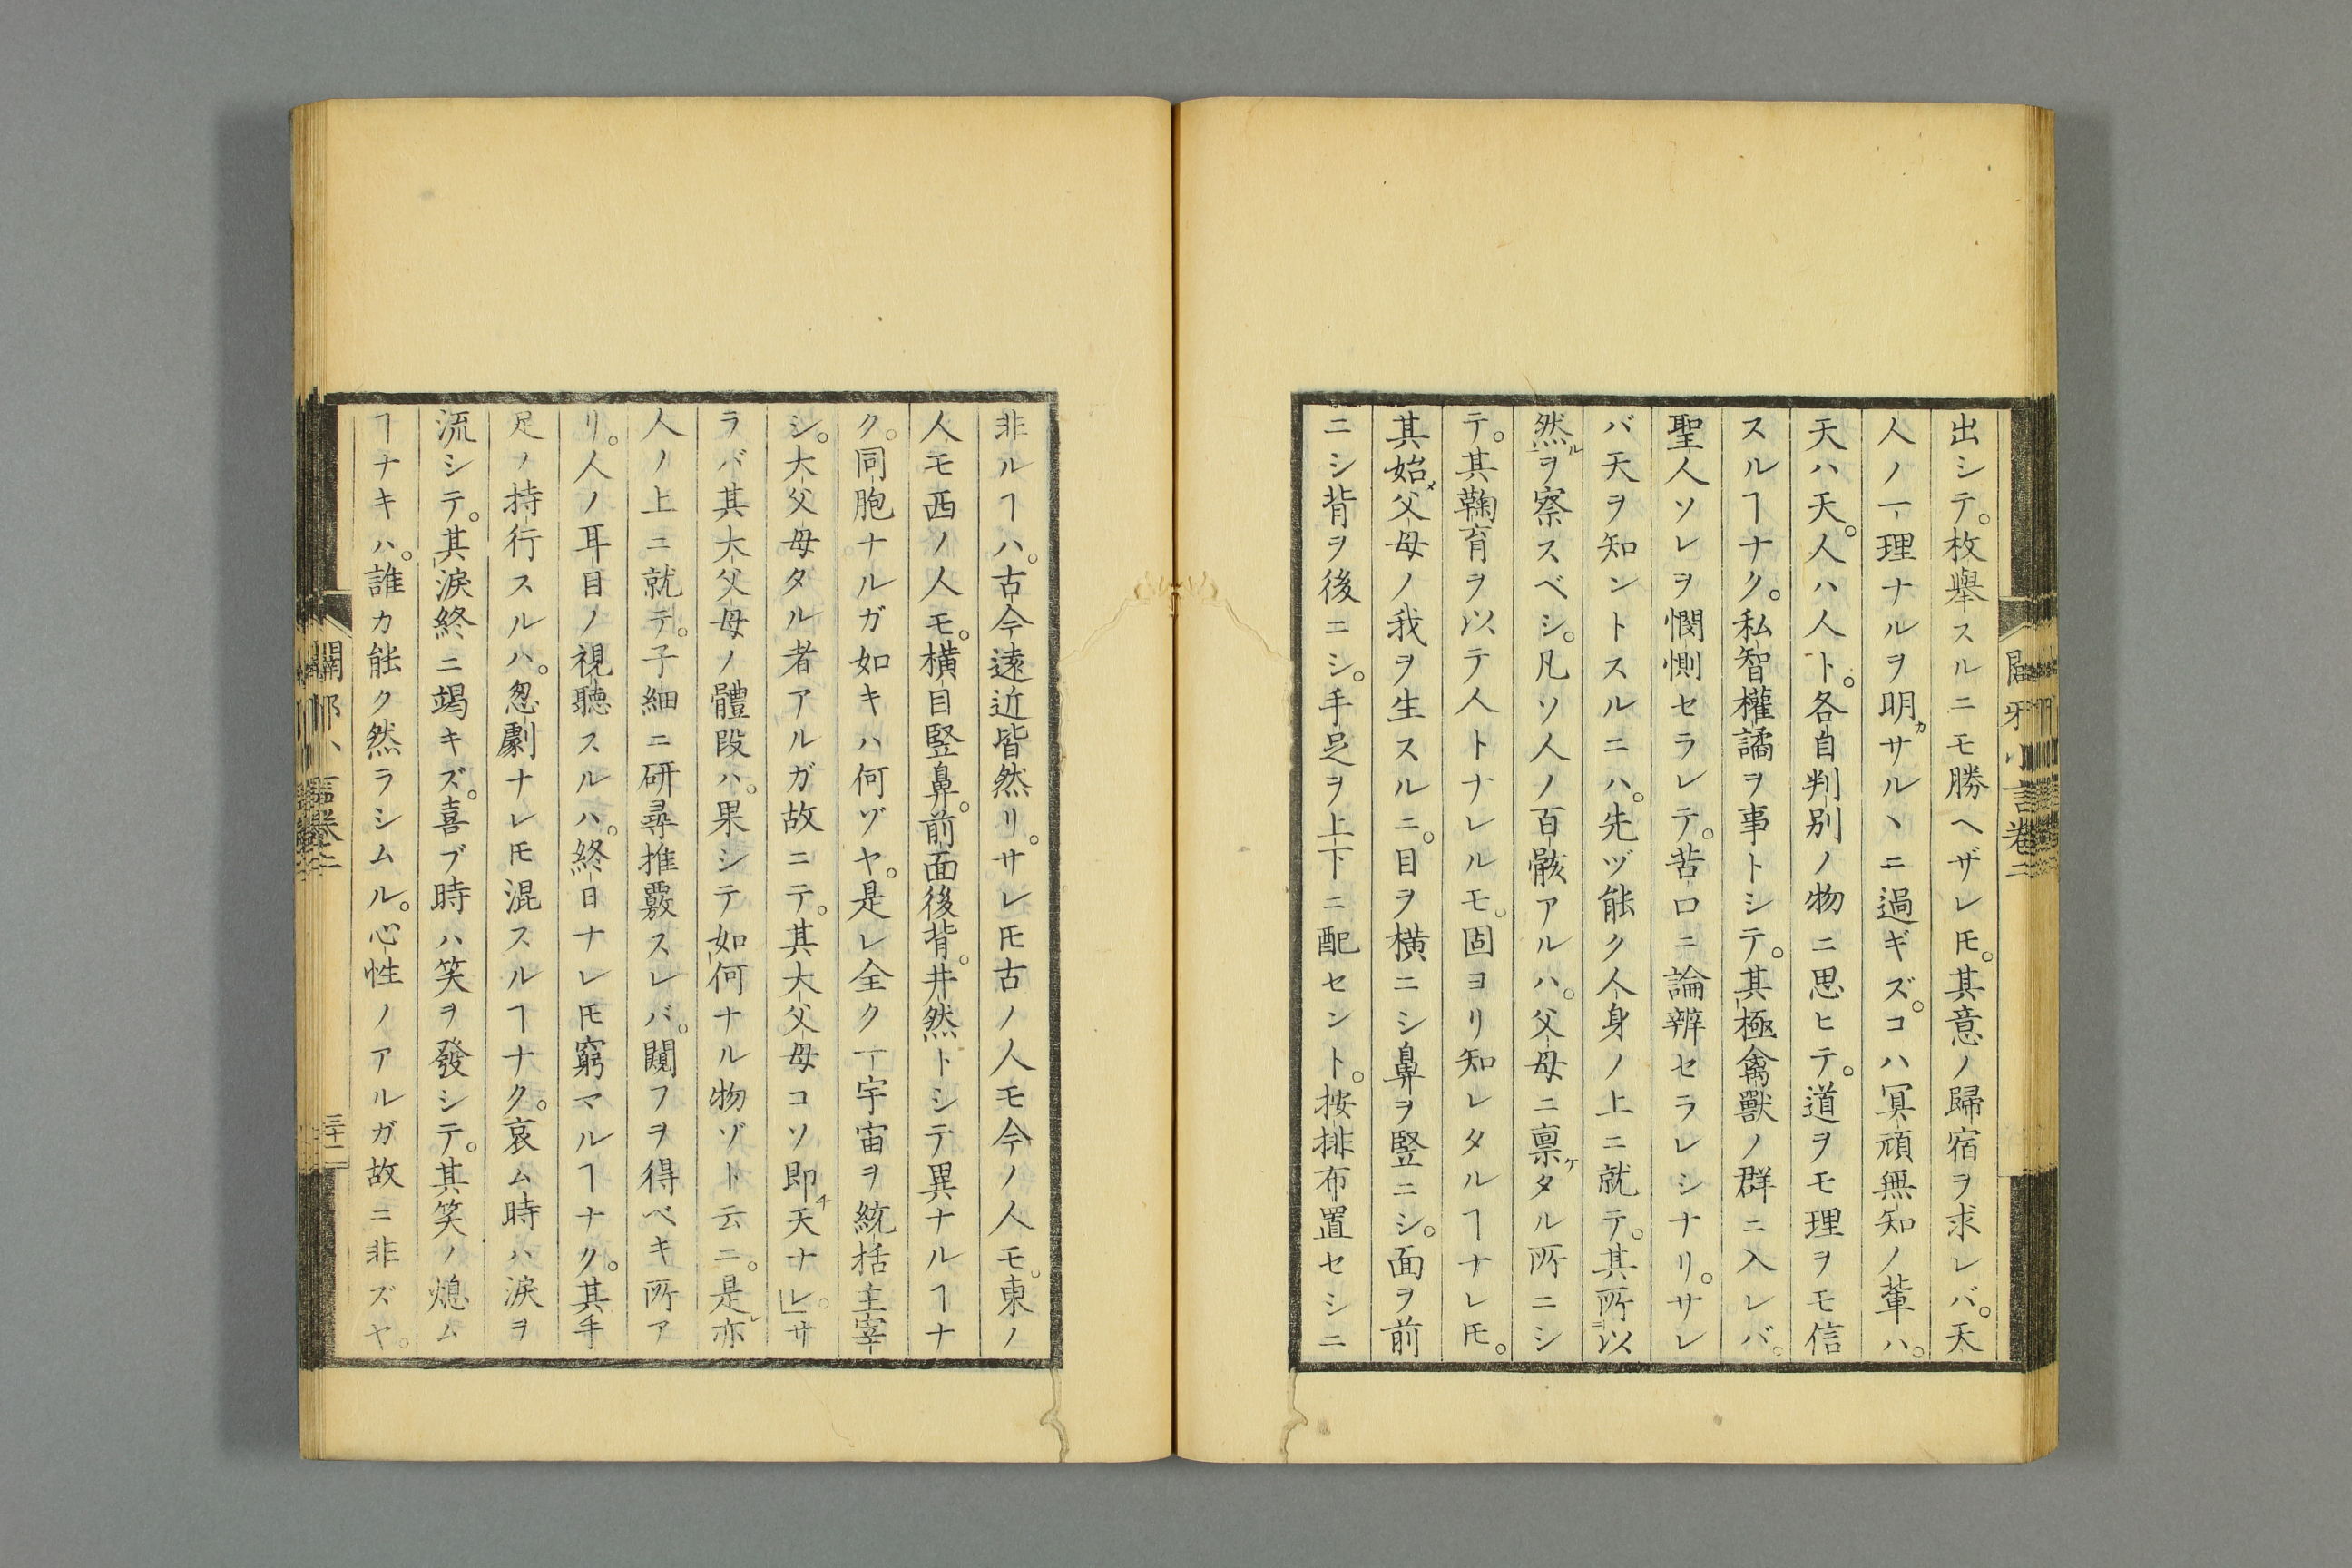 出シテ。枚擧スルニモ勝ヘザレ𪜈。其意ノ歸宿ヲ求レバ。天
人ノ一理ナルヲ明カサルヽニ過ギズ。コハ冥頑無知ノ輩ハ。
天ハ天。人ハ人ト。各自判別ノ物ニ思ヒテ。道ヲモ理ヲモ信
スルヿナク。私智權譎ヲ事トシテ。其極禽獸ノ群ニ入レバ。
聖人ソレヲ憫惻セラレテ。苦口ニ論辨セラレシナリ。サレ
バ天ヲ知ントスルニハ。先ヅ能ク人身ノ上ニ就テ。其所以
然ルヲ察スベシ。凡ソ人ノ百骸アルハ。父母ニ禀ケタル所ニシ
テ。其鞠育ヲ以テ人トナレルモ。固ヨリ知レタルヿナレ𪜈。
其始メ父母ノ我ヲ生スルニ。目ヲ横ニシ鼻ヲ竪ニシ。面ヲ前
ニシ背ヲ後ニシ。手足ヲ上下ニ配セント。按排布置セシニ
闢邪小言卷二
非ルヿハ。古今遠近皆然リ。サレ𪜈古ノ人モ今ノ人モ。東ノ
人モ西ノ人モ。横目竪鼻。前面後背。井然トシテ異ナルヿナ
ク。同胞ナルガ如キハ何ヅヤ。是レ全ク一宇宙ヲ統括主宰
シ。大父母タル者アルガ故ニテ。其大父母コソ即チ天ナレ。」サ
ラバ其大父母ノ體段ハ。果シテ如何ナル物ゾト云ニ。是レ亦
人ノ上ニ就テ。子細ニ研尋推覈スレバ。闚フヲ得ベキ所ア
リ。人ノ耳目ノ視聽スルハ。終日ナレ𪜈窮マルヿナク。其手
足ノ持行スルハ。怱劇ナレ𪜈混スルヿナク。哀ム時ハ淚ヲ
流シテ。其淚終ニ竭キズ。喜ブ時ハ笑ヲ發シテ。其笑ノ熄ム
ヿナキハ。誰カ能ク然ラシムル。心性ノアルガ故ニ非ズヤ。
闢邪小言卷二
三十二